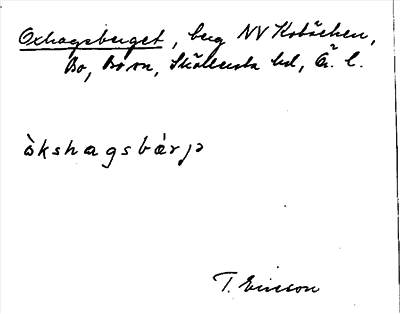 Oxhagsberget, berg NV Kotäcken,
Bo, Bo sn, Sköllersta hd, Ö. l.
òkshagsbärjə
T. Ericson